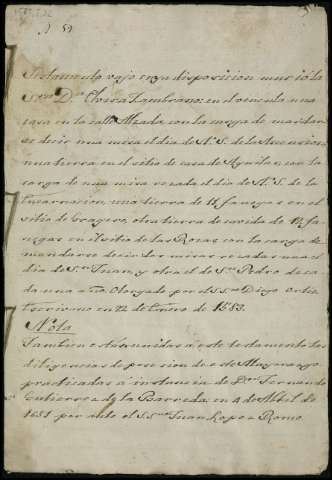 Nº 51
Testamento vajo cuya disposicion murió la
S.ra D.a Elvira Zambrano; en el vincula una
casa en la calle Alzada con la carga de mandar
decir una misa el dia de N.a S.a de la Asuncion
una tierra en el sitio de casa de Aguilar, con la
carga de una misa rezada el dia de N.a S.a de la
Encarnacion, una tierra de 11 fanegas en el
sitio de otra tierra de cavida de 12 fa-
negas en el sitio de las Rosas con la carga de
mandarse decir tres misas rezadas una el
dia de S.n Juan, y otra el de S.n Pedro de ca
da una año. Otorgado por el S.no Diego Ortiz
Escrivano en 12 de Enero de 1583.
Nota
Tambien estan unidas a este testamento las
diligencias de posesion de este Mayorazgo
practicadas á instancia de D.n Fernando
Gutierrez de la Barreda en 4 de Abril de
1651 por ante el S.no Juan Lopez Romo